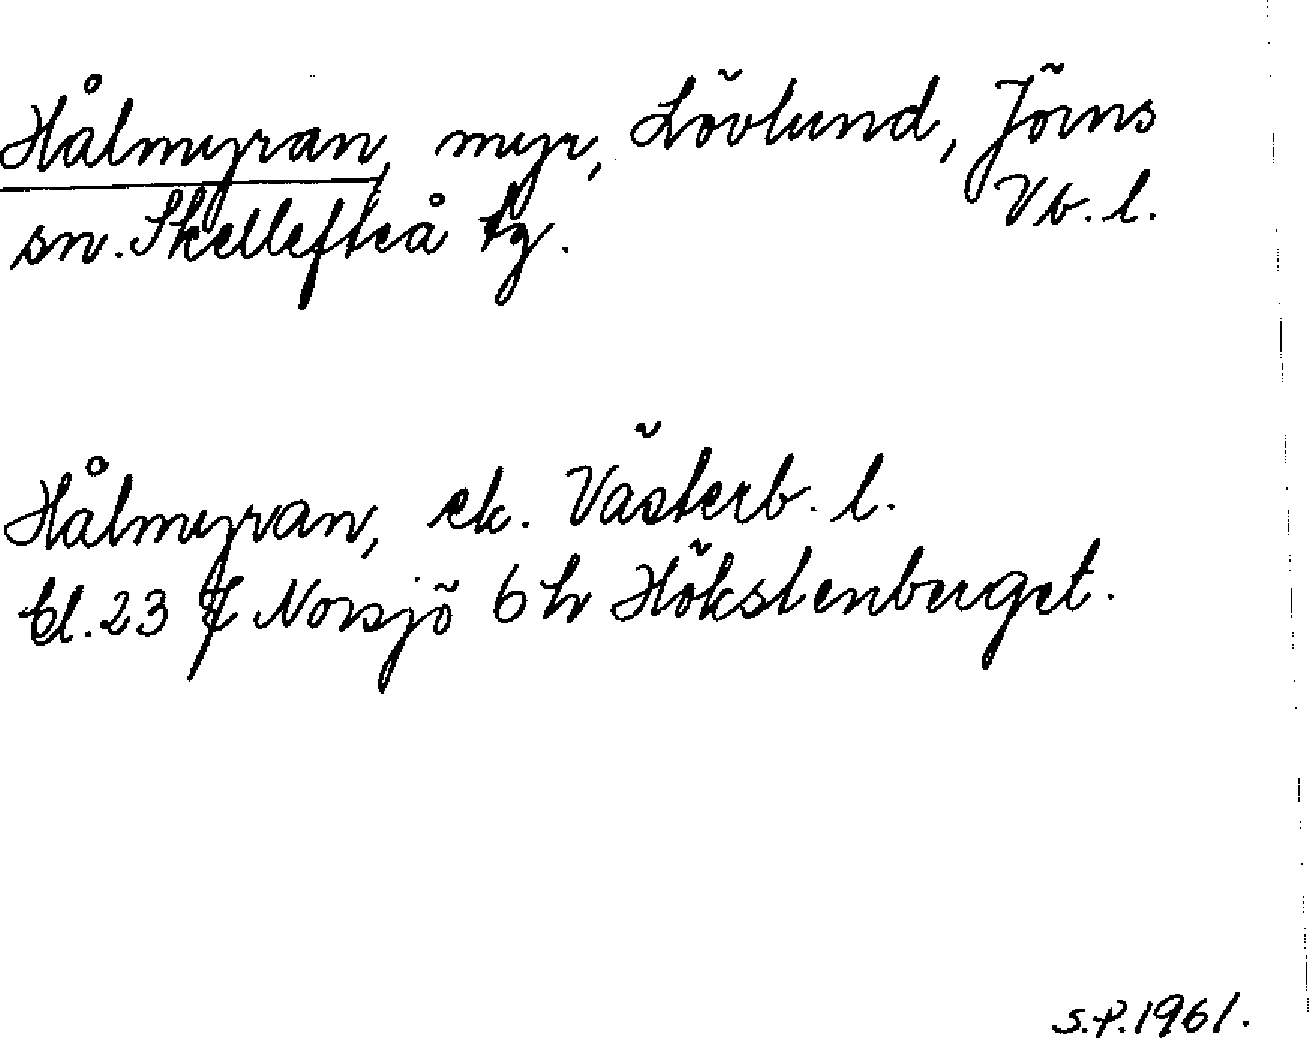 Hålmyran, myr, Lövlund, Jörns
sn. Skellefteå tg. Vb. l.
Hålmyran, ek. Västerb. l.
bl. 23 J Norsjö 6 h Hökstenberget.
S.P. 1961.